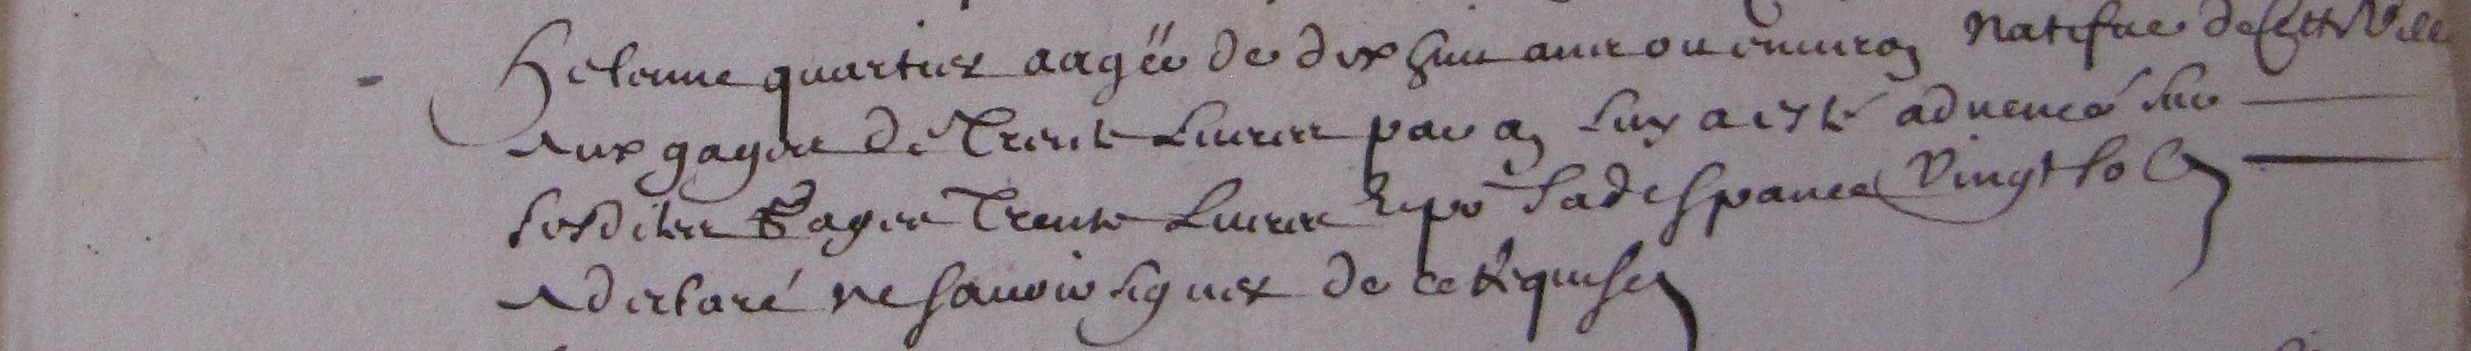 Helenne quartier aagée de dix huit ans ou environ Natifue de cette Ville
Aux gages de Trente Liures par an Luy a esté aduencé sur
sesdites Gages Trente Liures Et po<sup>r</sup> sa despance Vingt sols
A declaré ne sauoir signer de ce Requise